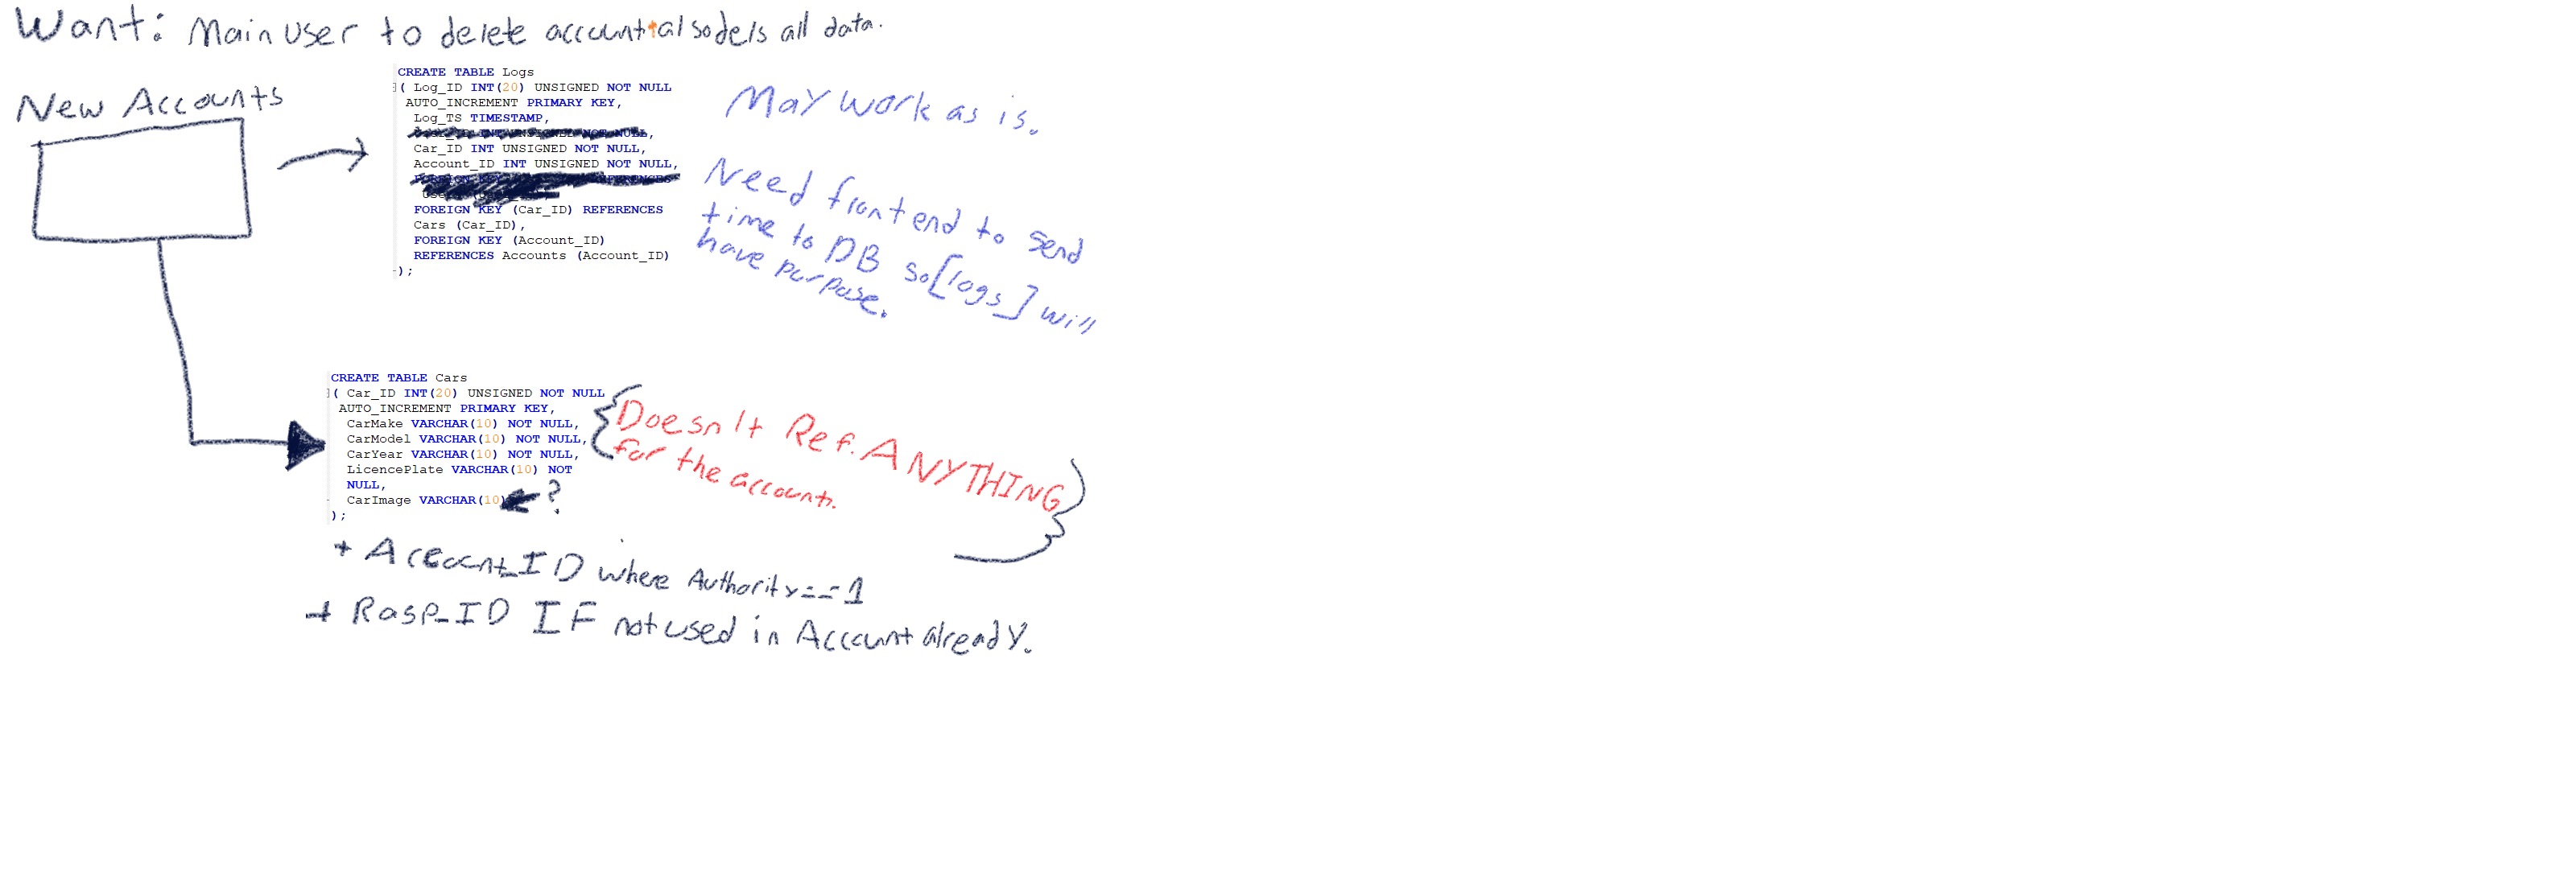 Want: Main user to delete account also dels all data.
New Accounts
CREATE TABLE Logs
( Log_ID INT(20) UNSIGNED NOT NULL
AUTO_INCREMENT PRIMARY KEY,
Log_TS TIMESTAMP,
INT UNSIGNED NOT NULL,
Car_ID INT UNSIGNED NOT NULL,
Account_ID INT UNSIGNED NOT NULL,
FOREIGN KEY REFERENCES
FOREIGN KEY (Car_ID) REFERENCES
Cars (Car_ID),
FOREIGN KEY (Account_ID)
REFERENCES Accounts (Account_ID)
);
May work as is.
Need frontend to send
time to DB so [logs] will
have purpose.
CREATE TABLE Cars
( Car_ID INT(20) UNSIGNED NOT NULL
AUTO_INCREMENT PRIMARY KEY,
CarMake VARCHAR(10) NOT NULL,
CarModel VARCHAR(10) NOT NULL,
CarYear VARCHAR(10) NOT NULL,
LicencePlate VARCHAR(10) NOT
NULL,
CarImage VARCHAR(10) ?
);
Doesn't Ref. ANYTHING
for the account.
+ Account_ID where Authority==1
+ Rasp_ID IF not used in Account already.